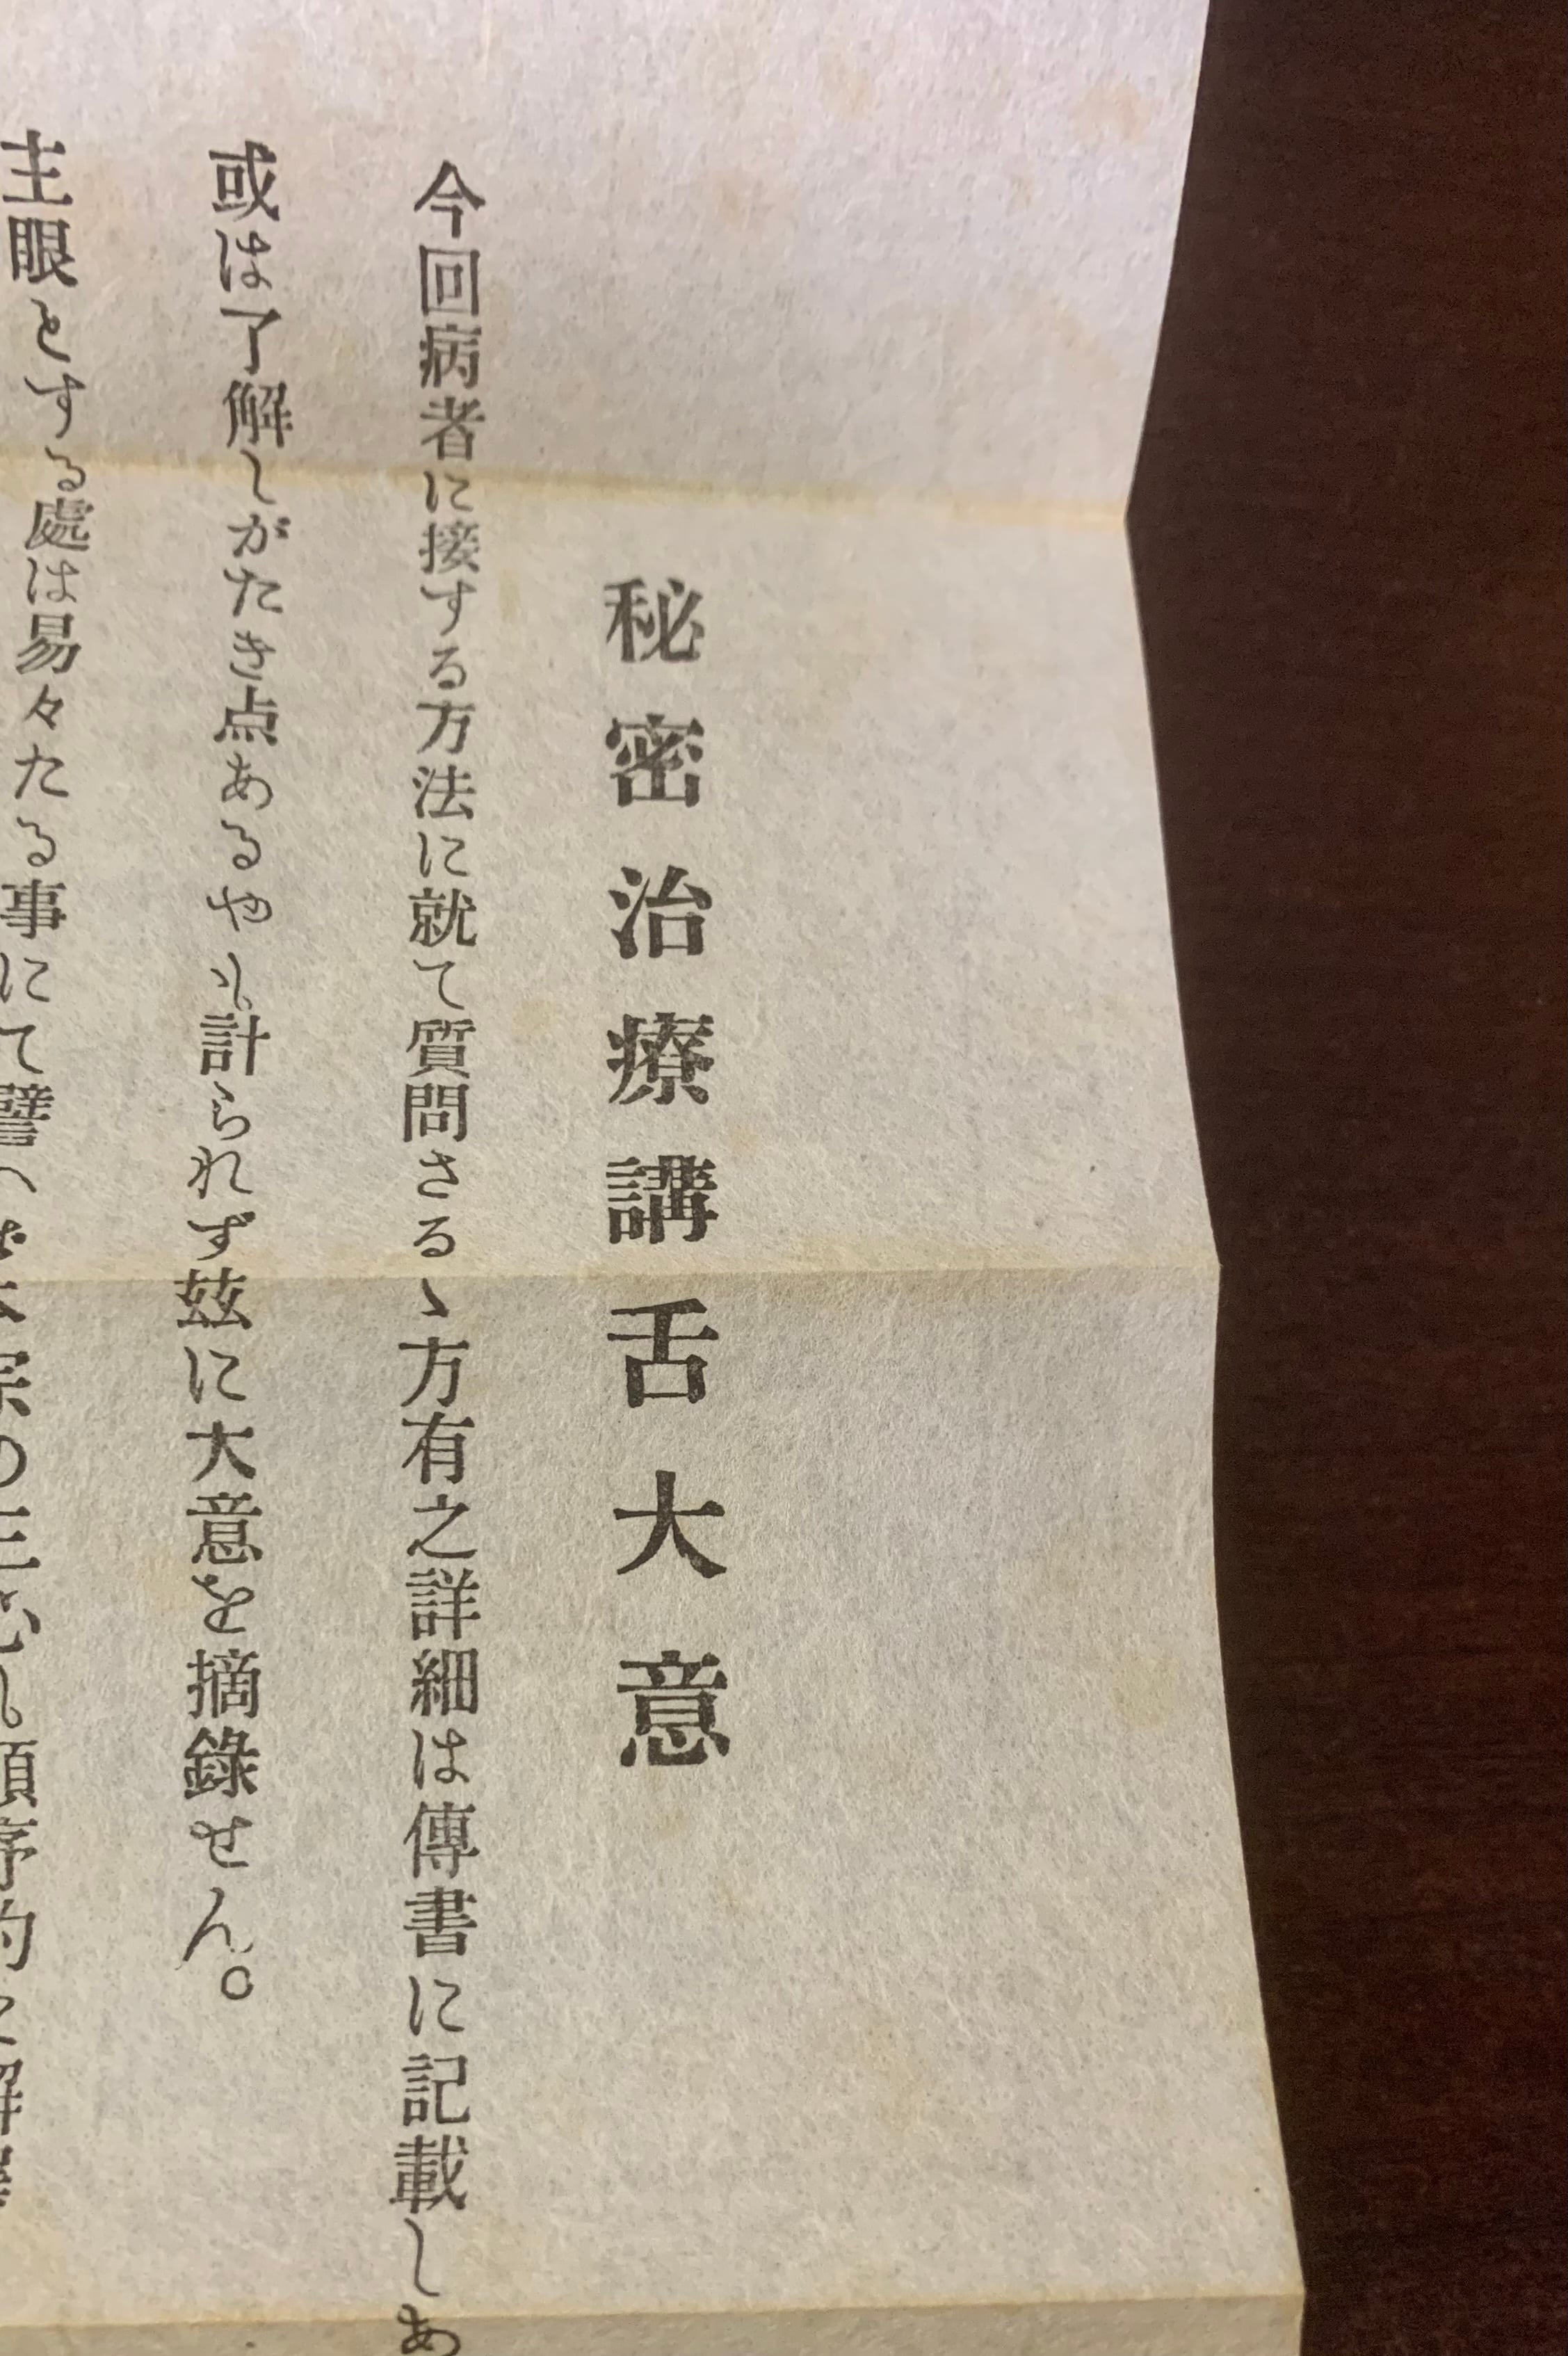 秘密治療講舌大意
今回病者に接する方法に就て質問さるゝ方有之詳細は傳書に記載しあ
或は了解しがたき点あるやも計られず玆に大意を摘錄せん。
主眼とする處は易々たる事にて譬へば